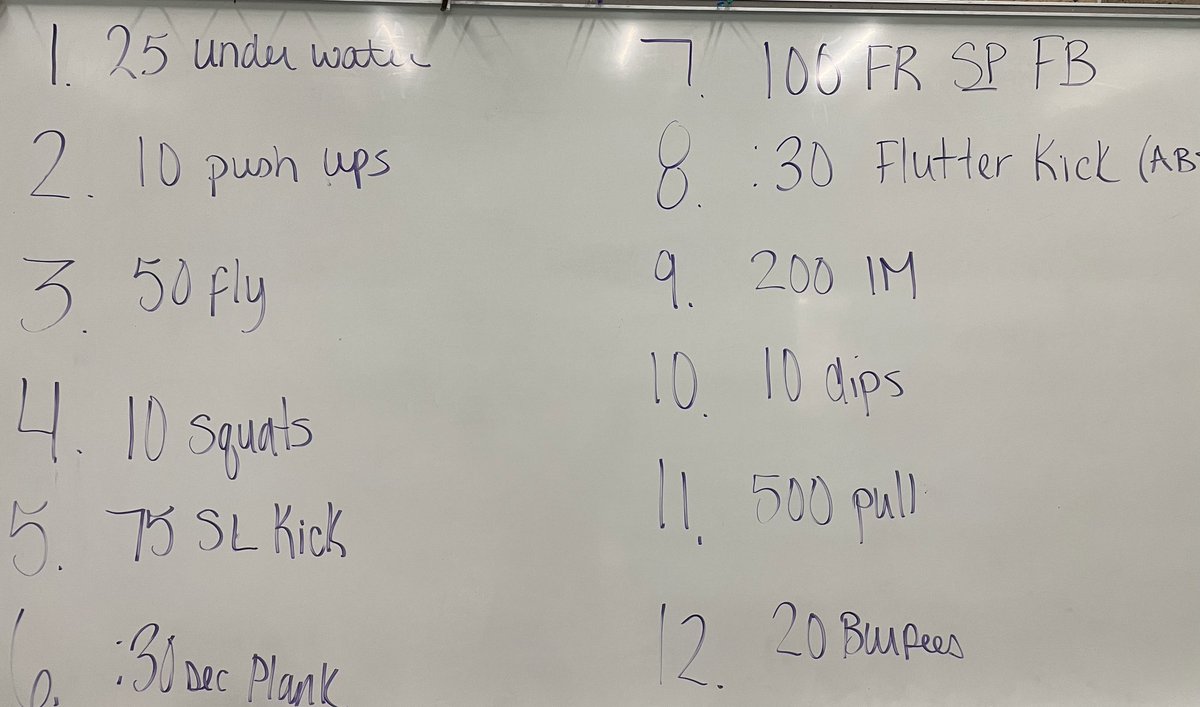 1. 25 under water
2. 10 push ups
3. 50 fly
4. 10 squats
5. 75 SL Kick
6. :30 Dec Plank
7. 100 FR SP FB
8. :30 Flutter Kick (AB
9. 200 IM
10. 10 dips
11. 500 pull
12. 20 Burpees